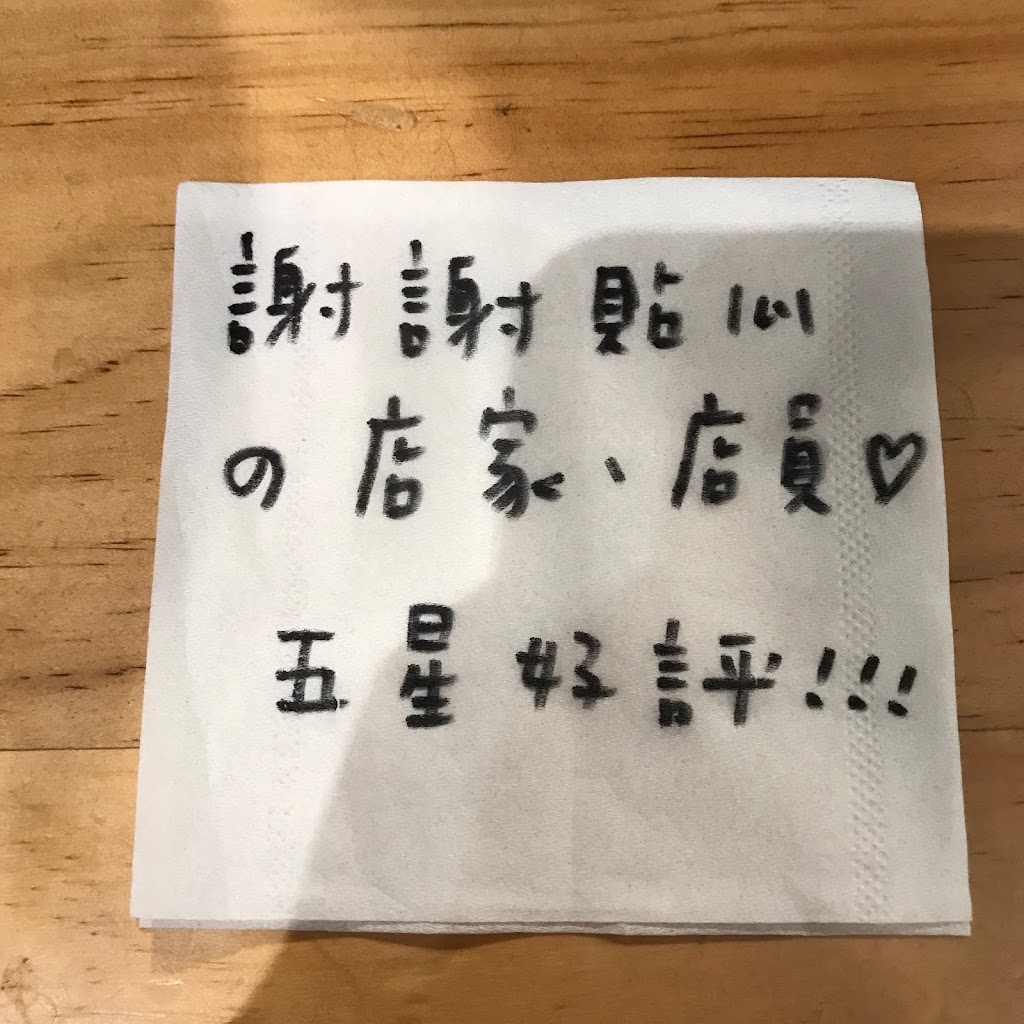 謝謝貼心
の店家、店員♡
五星好評!!!